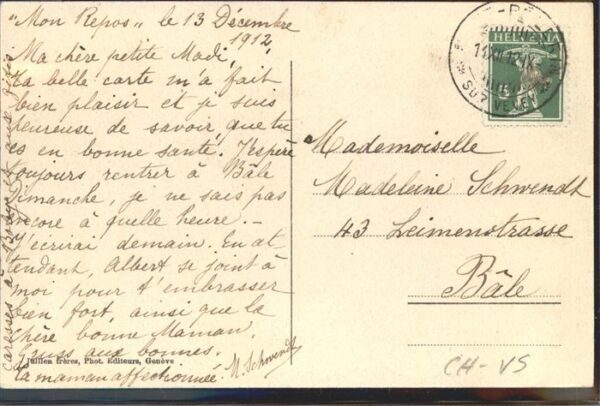 "Mon Repos" le 13 Décembre
1912.
Ma chère petite Madi,
Ta belle carte m'a fait
bien plaisir et je suis
heureuse de savoir, que tu
es en bonne santé. J'espère
toujours rentrer à Bâle
Dimanche, je ne sais pas
encore à quelle heure. –
J'écrirai demain. En at-
tendant, Albert se joint à
moi pour t'embrasser
bien fort, ainsi que la
chère bonne Maman.
Gruss aux bonnes.
Ta maman affectionnée.
M. Schwendt
caresses à
Jullien frères, Phot. Editeurs, Genève
HELVETIA
5
SUR VEVEY
Mademoiselle
Madeleine Schwendt
43 Leimenstrasse
Bâle
CH-VS